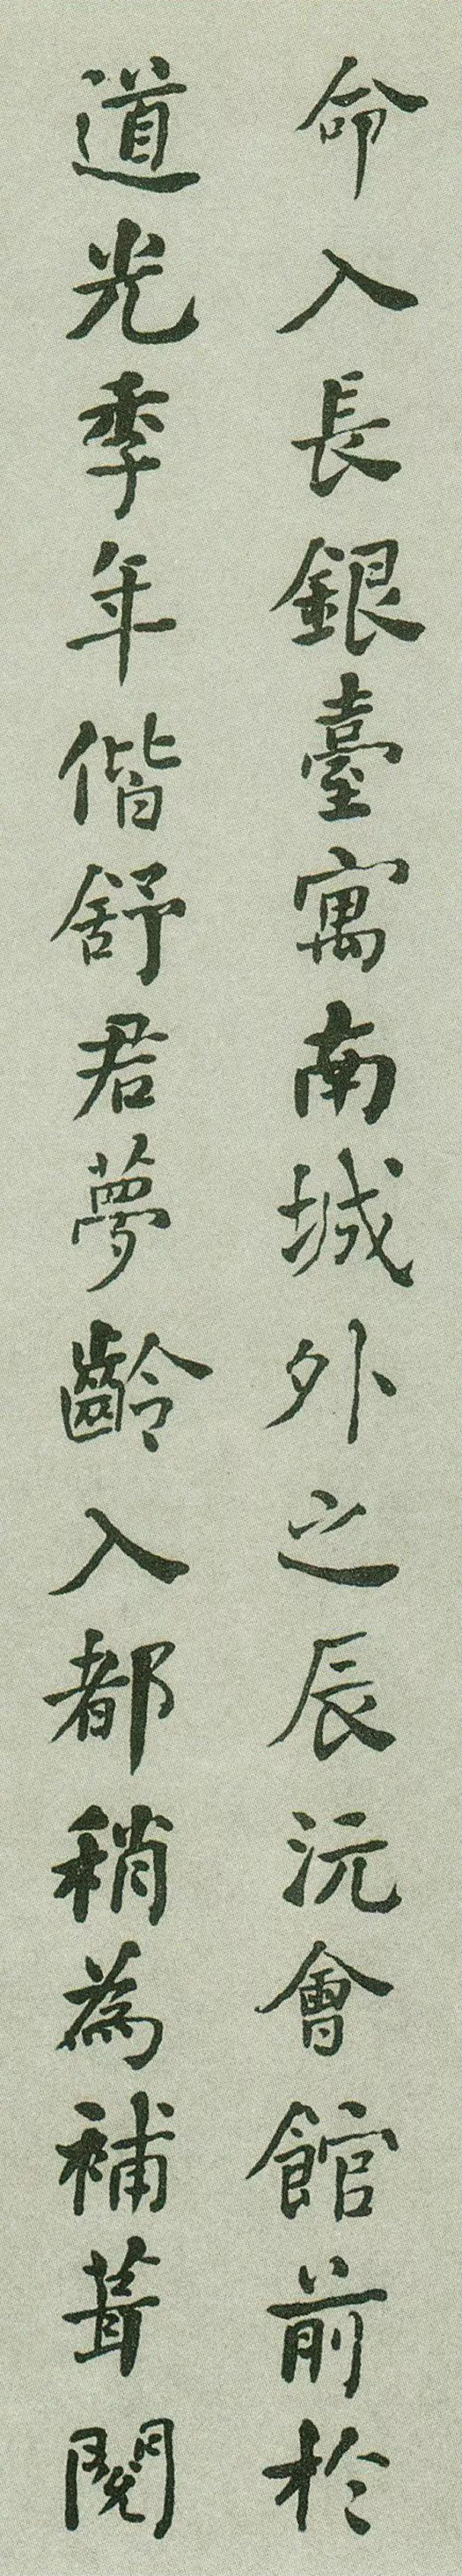 命入長銀臺寓南城外之辰沅會館前於
道光季年偕舒君夢齡入都稍為補葺閱